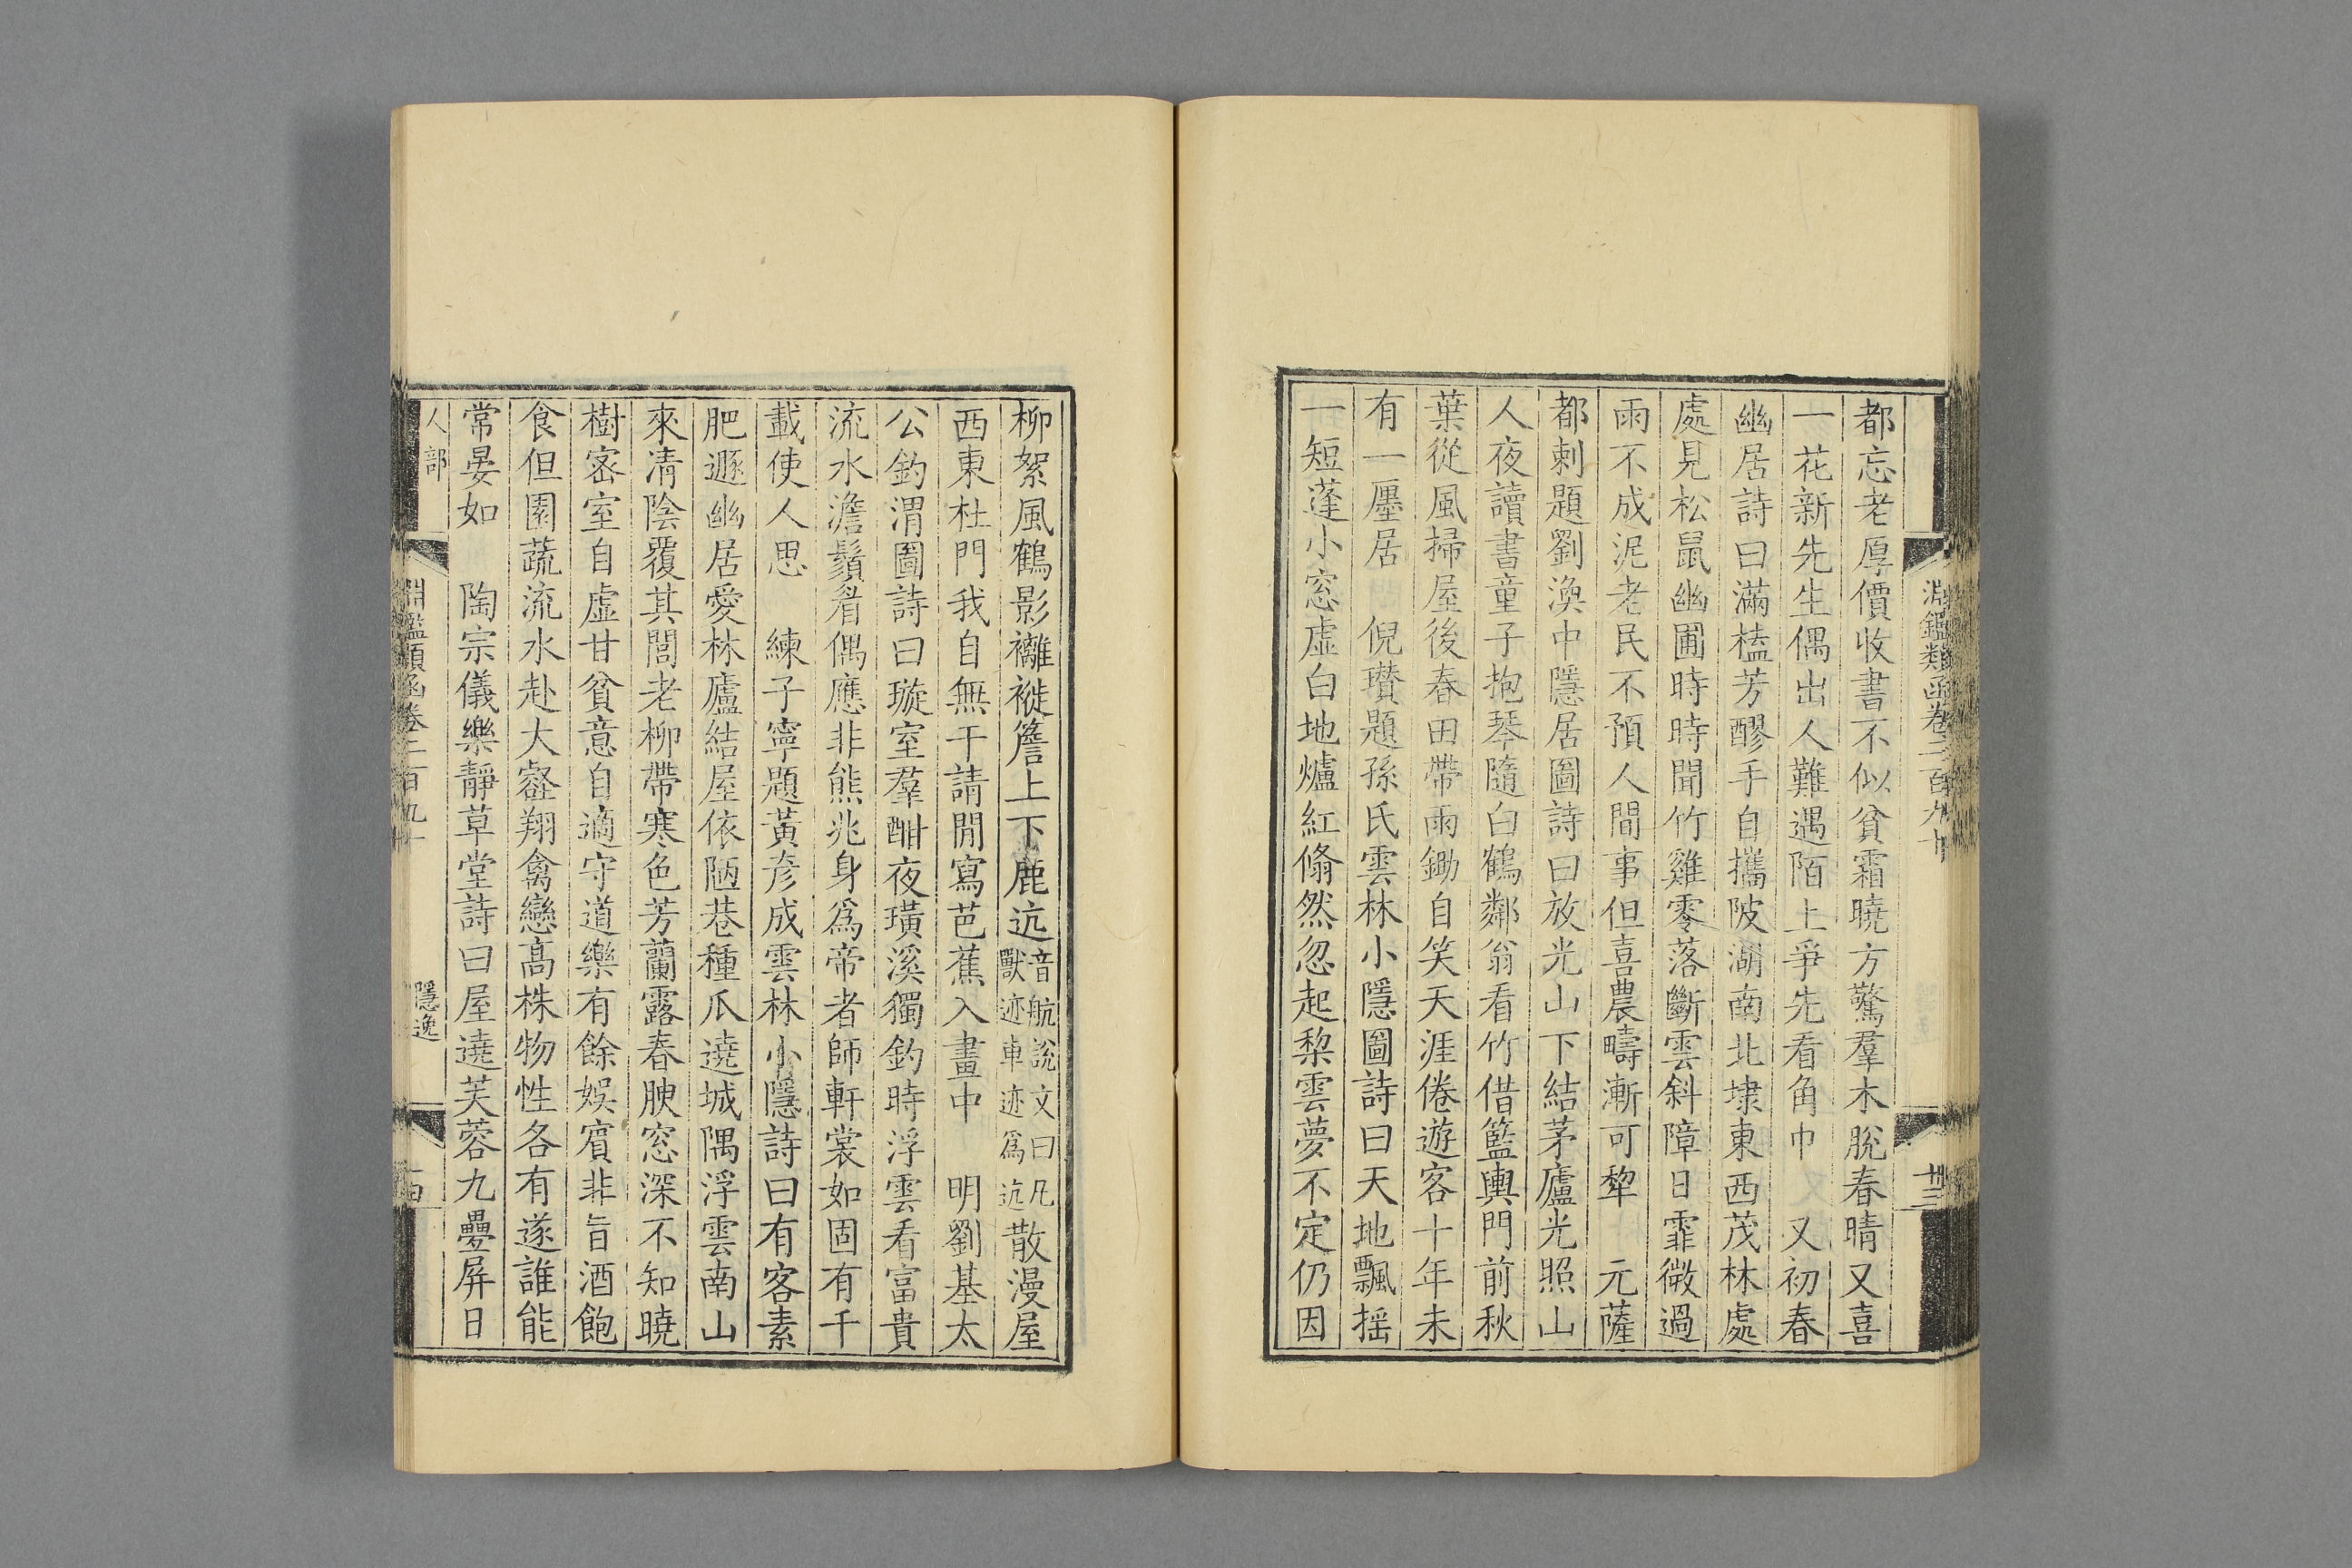 淵鑑類函卷二百九十
十三
都忘老厚價收書不似貧霜曉方驚羣木脫春晴又喜
一花新先生偶出人難遇陌上爭先看角巾　又初春
幽居詩曰滿榼芳醪手自攜陂湖南北埭東西茂林處
處見松鼠幽圃時時聞竹雞零落斷雲斜障日霏微過
雨不成泥老民不預人間事但喜農疇漸可犂　元薩
都剌題劉渙中隱居圖詩曰放光山下結茅廬光照山
人夜讀書童子抱琴隨白鶴鄰翁看竹借籃輿門前秋
葉從風掃屋後春田帶雨鋤自笑天涯倦遊客十年未
有一廛居　倪瓚題孫氏雲林小隱圖詩曰天地飄搖
一短蓬小窓虛白地爐紅翛然忽起棃雲夢不定仍因
柳絮風鶴影褵褷簷上下鹿迒音航說文曰凡獸迹車迹爲迒散漫屋
西東杜門我自無干請閒寫芭蕉入畫中　明劉基太
公釣渭圖詩曰璇室羣酣夜璜溪獨釣時浮雲看富貴
流水澹鬚眉偶應非熊兆身爲帝者師軒裳如固有千
載使人思　練子寧題黃彥成雲林小隱詩曰有客素
肥遯幽居愛林廬結屋依陋巷種瓜遶城隅浮雲南山
來凊陰覆其閭老柳帶寒色芳蘭露春腴窓深不知曉
樹密室自虛甘貧意自適守道樂有餘娛賓非旨酒飽
食但園蔬流水赴大壑翔禽戀高株物性各有遂誰能
常晏如　陶宗儀樂靜草堂詩曰屋遶芙蓉九疊屏日
人部
淵鑑類函卷二百九十
隱逸